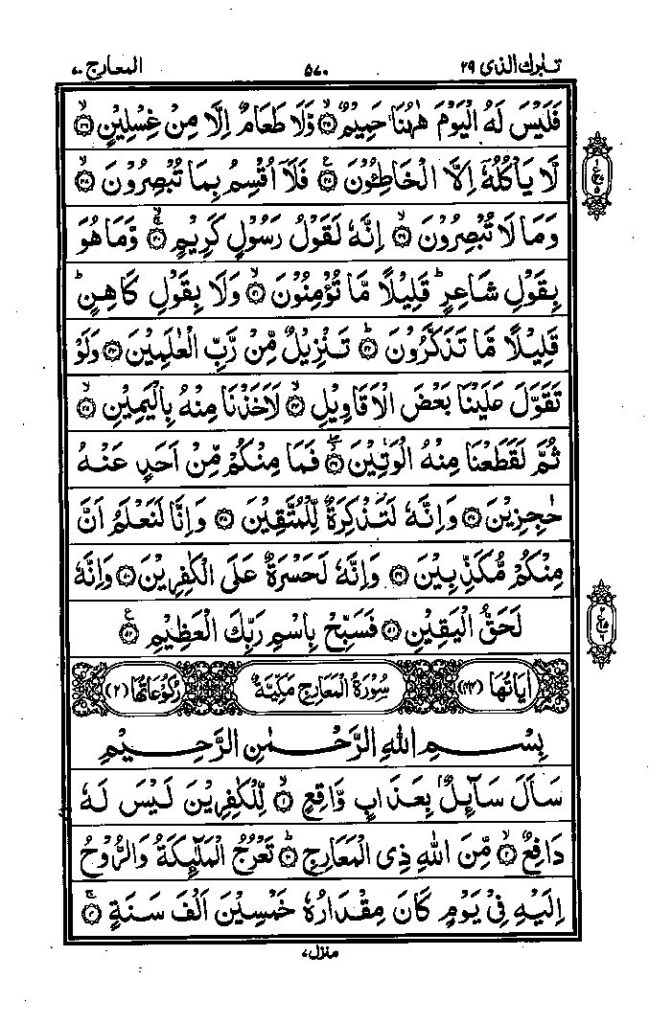 تبٰرك الذی ٢٩ ٥٧٠ المعارج ٧٠
فَلَيْسَ لَهُ الْيَوْمَ هٰهُنَا حَمِيْمٌ ۙ‏﴿٣٥﴾ وَّلَا طَعَامٌ اِلَّا مِنْ غِسْلِيْنٍ ۙ‏﴿٣٦﴾
لَّا يَاْكُلُهٗۤ اِلَّا الْخَاطِـُٔوْنَ ‏﴿٣٧﴾ فَلَاۤ اُقْسِمُ بِمَا تُبْصِرُوْنَ ۙ‏﴿٣٨﴾
وَمَا لَا تُبْصِرُوْنَ ۙ‏﴿٣٩﴾ اِنَّهٗ لَقَوْلُ رَسُوْلٍ كَرِيْمٍ ۚۙ‏﴿٤٠﴾ وَّمَا هُوَ
بِقَوْلِ شَاعِرٍ ؕ قَلِيْلًا مَّا تُؤْمِنُوْنَ ۙ‏﴿٤١﴾ وَلَا بِقَوْلِ كَاهِنٍ ؕ
قَلِيْلًا مَّا تَذَكَّرُوْنَ ؕ‏﴿٤٢﴾ تَنْزِيْلٌ مِّنْ رَّبِّ الْعٰلَمِيْنَ ‏﴿٤٣﴾ وَلَوْ
تَقَوَّلَ عَلَيْنَا بَعْضَ الْاَقَاوِيْلِ ۙ‏﴿٤٤﴾ لَاَخَذْنَا مِنْهُ بِالْيَمِيْنِ ۙ‏﴿٤٥﴾
ثُمَّ لَقَطَعْنَا مِنْهُ الْوَتِيْنَ ‏﴿٤٦﴾ فَمَا مِنْكُمْ مِّنْ اَحَدٍ عَنْهُ
حٰجِزِيْنَ ‏﴿٤٧﴾ وَاِنَّهٗ لَتَذْكِرَةٌ لِّلْمُتَّقِيْنَ ‏﴿٤٨﴾ وَاِنَّا لَنَعْلَمُ اَنَّ
مِنْكُمْ مُّكَذِّبِيْنَ ‏﴿٤٩﴾ وَاِنَّهٗ لَحَسْرَةٌ عَلَى الْكٰفِرِيْنَ ‏﴿٥٠﴾ وَاِنَّهٗ
لَحَقُّ الْيَقِيْنِ ‏﴿٥١﴾ فَسَبِّحْ بِاسْمِ رَبِّكَ الْعَظِيْمِ ‏﴿٥٢﴾
اٰيَاتُهَا (٤٤) سُوْرَةُ الْمَعَارِجِ مَكِّيَّةٌ رُكُوْعَاتُهَا (٢)
بِسْمِ اللهِ الرَّحْمٰنِ الرَّحِيْمِ
سَاَلَ سَآئِلٌۢ بِعَذَابٍ وَّاقِعٍ ۙ‏﴿١﴾ لِّلْكٰفِرِيْنَ لَيْسَ لَهٗ
دَافِعٌ ۙ‏﴿٢﴾ مِّنَ اللهِ ذِى الْمَعَارِجِ ؕ‏﴿٣﴾ تَعْرُجُ الْمَلٰٓئِكَةُ وَالرُّوْحُ
اِلَيْهِ فِىْ يَوْمٍ كَانَ مِقْدَارُهٗ خَمْسِيْنَ اَلْفَ سَنَةٍ ۚ‏﴿٤﴾
منزل ٧